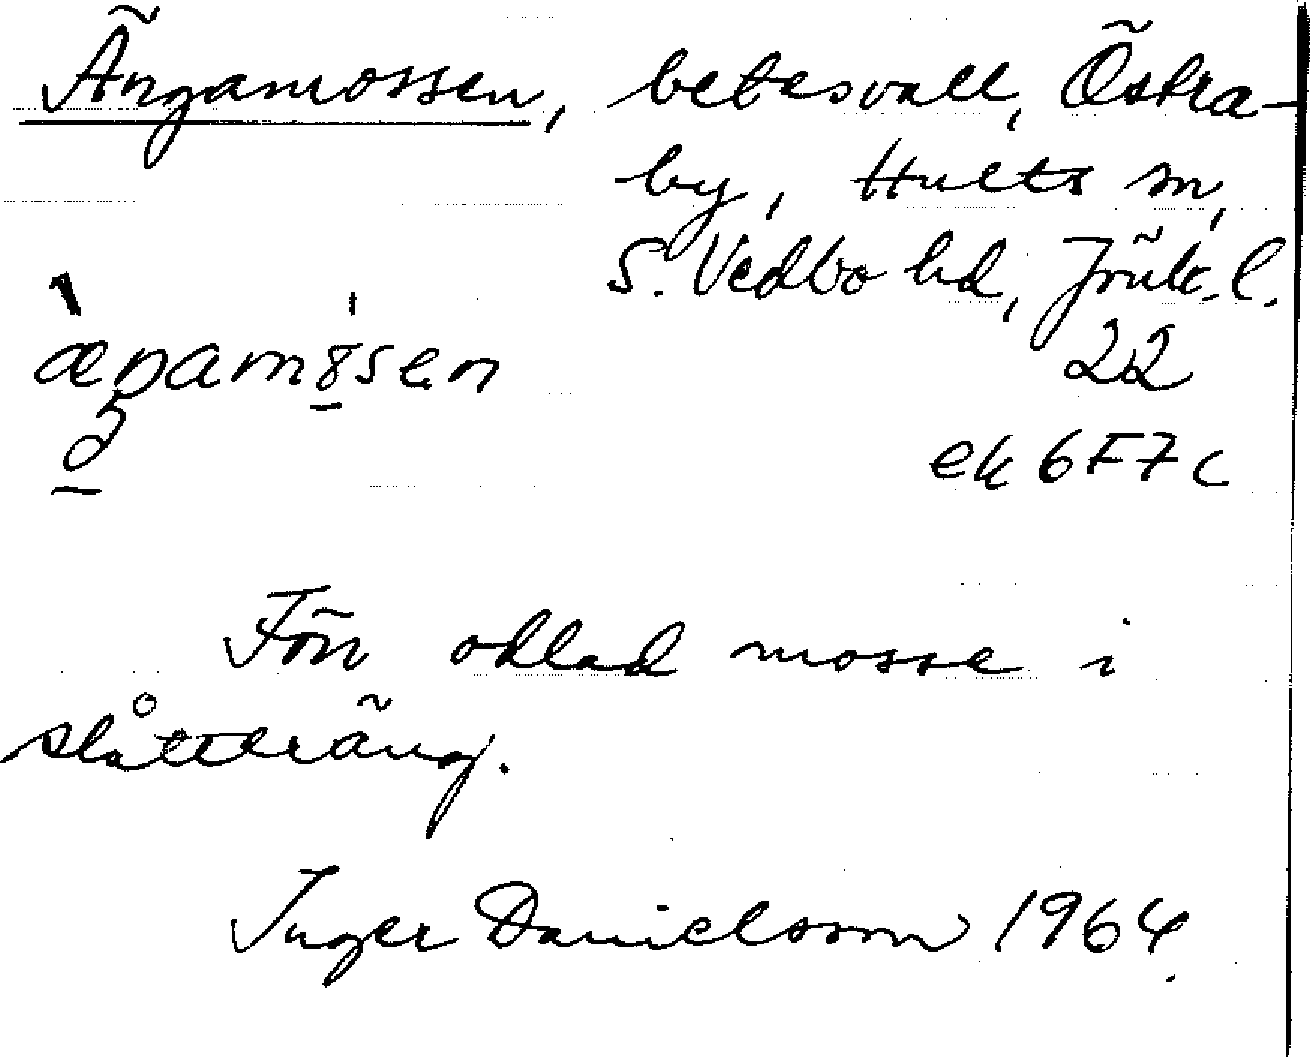 Ängamossen, betesvall, Östra-
by, Hults sn,
S. Vedbo hd, Jönk. l.
22
ek 6F7c
Förr odlad mosse i
slåtteräng.
Inger Danielsson 1964.